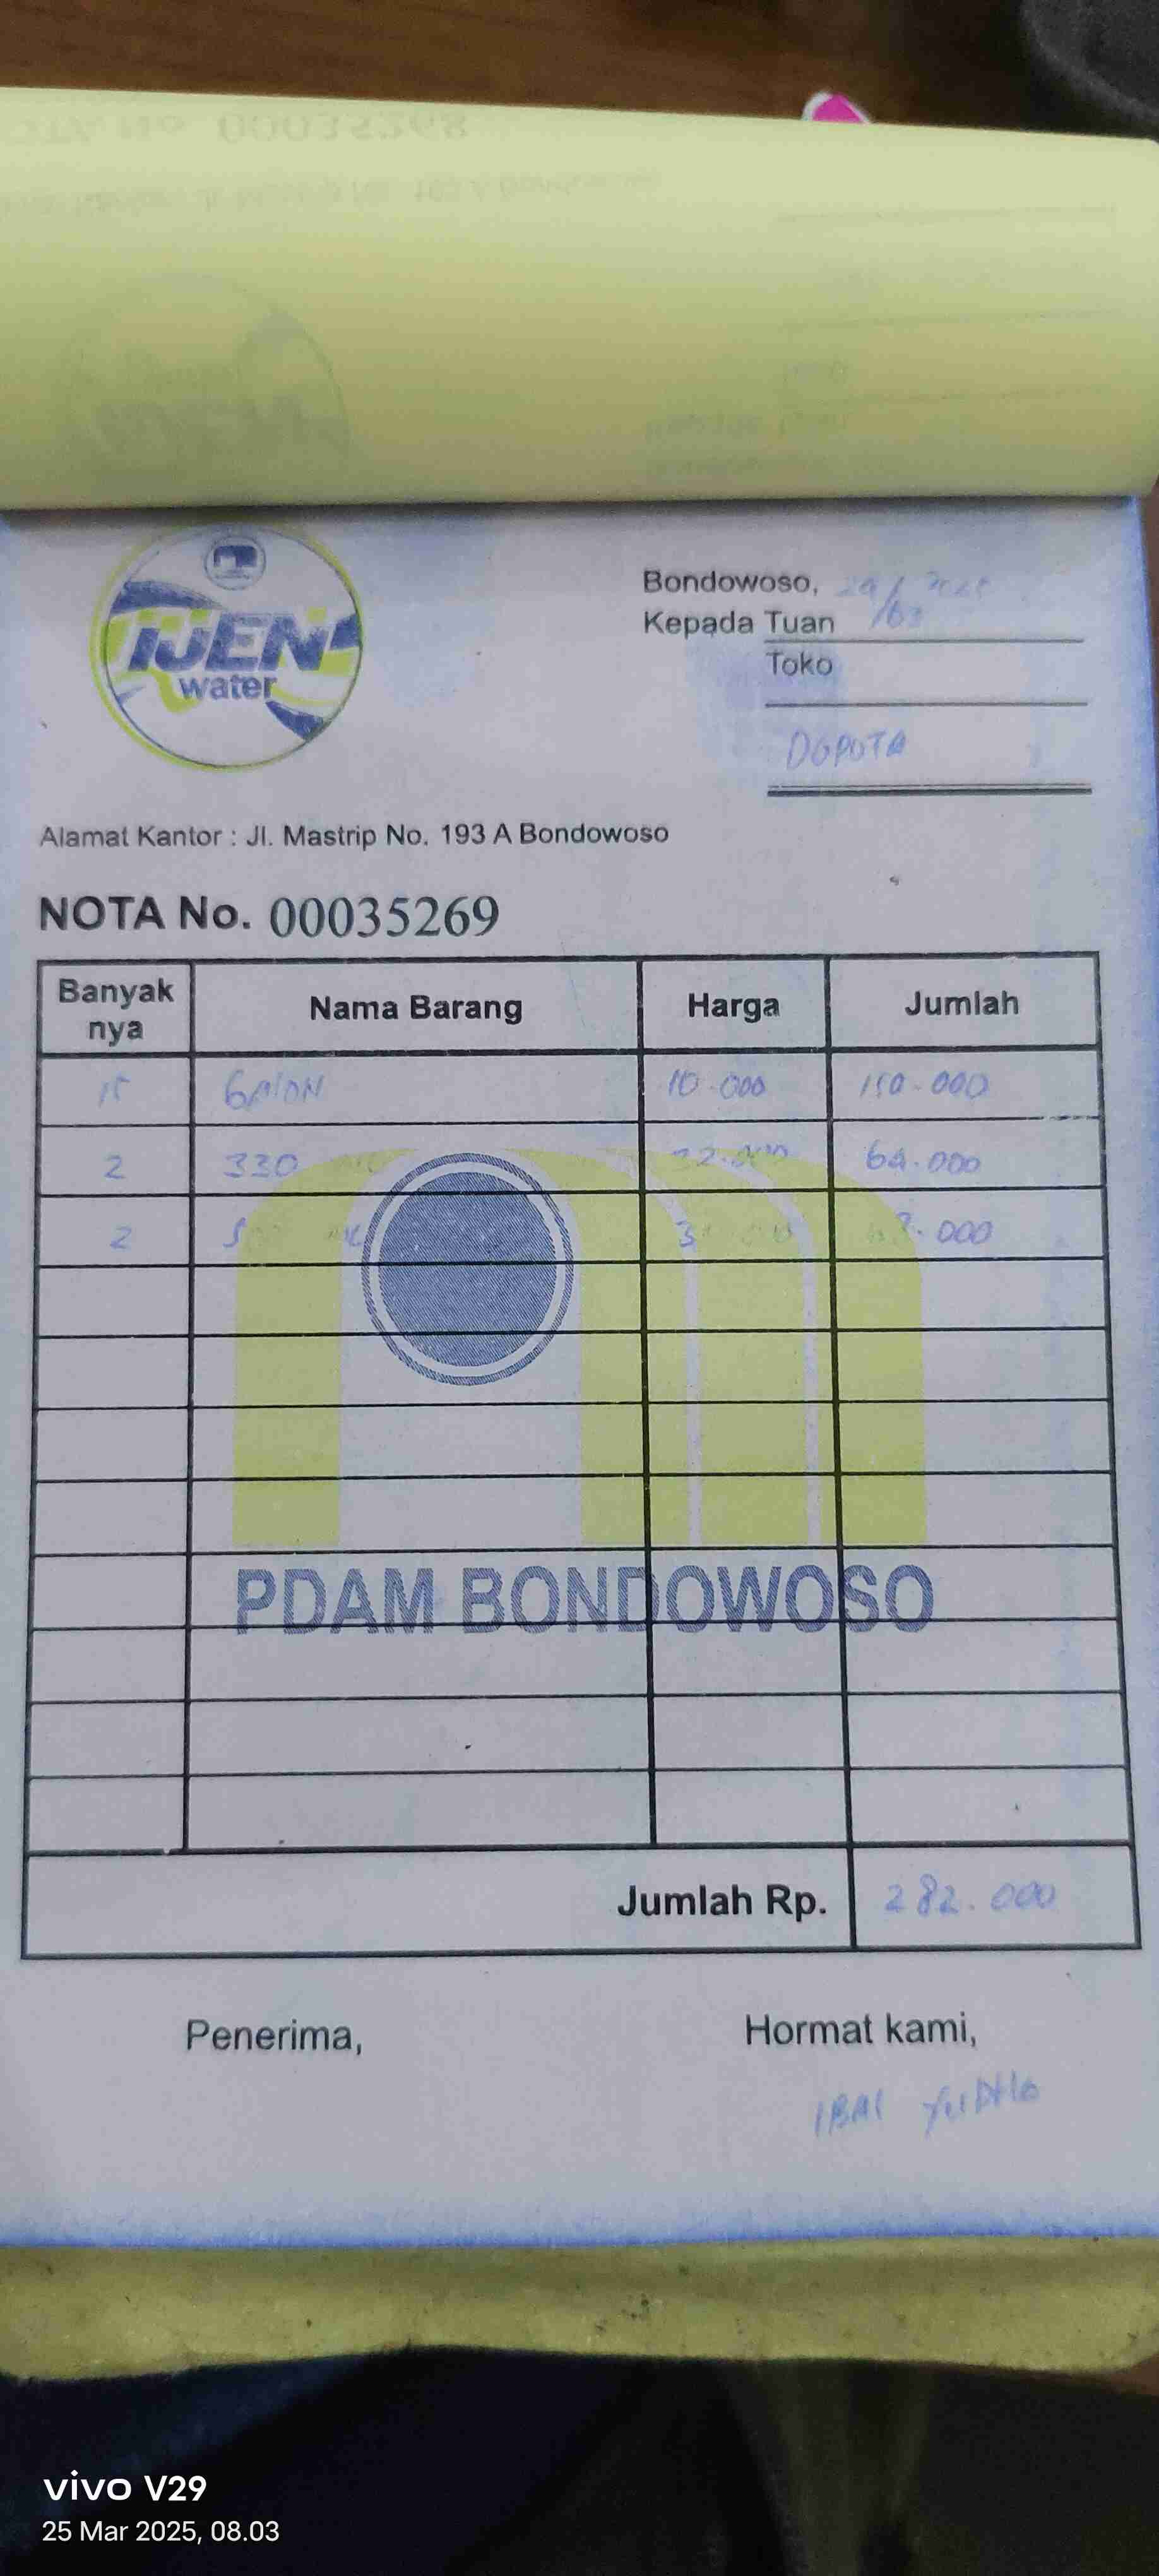 00035268
IJEN
water
Bondowoso,
Kepada Tuan
Toko
DGPOTA
Alamat Kantor : Jl. Mastrip No. 193 A Bondowoso
NOTA No. 00035269
Banyak nya Nama Barang Harga Jumlah
15 GALON 10.000 150.000
2 330 32.000 64.000
2 .000
PDAM BONDOWOSO
Jumlah Rp. 282.000
Penerima, Hormat kami,
vivo V29
25 Mar 2025, 08.03